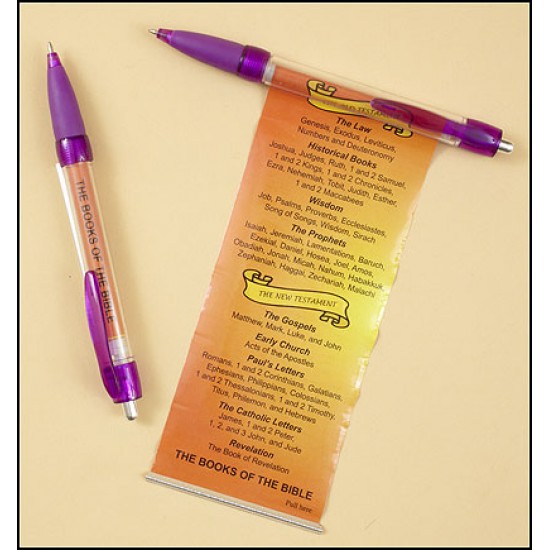 THE BOOKS OF THE BIBLE
THE OLD TESTAMENT
The Law
Genesis, Exodus, Leviticus,
Numbers and Deuteronomy
Historical Books
Joshua, Judges, Ruth, 1 and 2 Samuel,
1 and 2 Kings, 1 and 2 Chronicles,
Ezra, Nehemiah, Tobit, Judith, Esther,
1 and 2 Maccabees
Wisdom
Job, Psalms, Proverbs, Ecclesiastes,
Song of Songs, Wisdom, Sirach
The Prophets
Isaiah, Jeremiah, Lamentations, Baruch,
Ezekial, Daniel, Hosea, Joel, Amos,
Obadiah, Jonah, Micah, Nahum, Habakkuk,
Zephaniah, Haggai, Zechariah, Malachi
THE NEW TESTAMENT
The Gospels
Matthew, Mark, Luke, and John
Early Church
Acts of the Apostles
Paul's Letters
Romans, 1 and 2 Corinthians, Galatians,
Ephesians, Philippians, Colossians,
1 and 2 Thessalonians, 1 and 2 Timothy,
Titus, Philemon, and Hebrews
The Catholic Letters
James, 1 and 2 Peter,
1, 2, and 3 John, and Jude
Revelation
The Book of Revelation
THE BOOKS OF THE BIBLE
Pull here